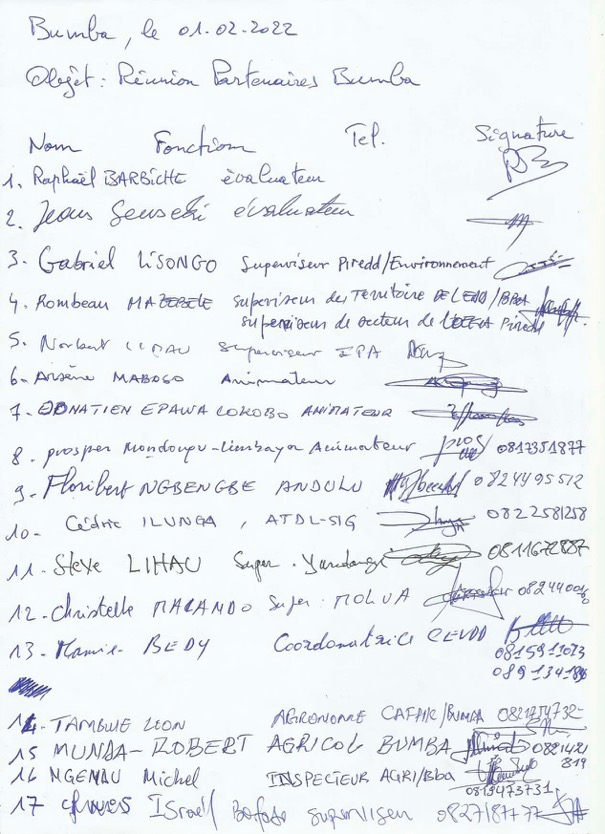 Bumba, le 01.02.2022
Objèt : Réunion Partenaires Bumba
Nom Fonction Tel. Signature
1. Raphaël BARBICHE évaluateur
2. Jeans évaluateur
3. Gabriel LISONGO Superviseur Piredd/Environnement
4. Rombeau superviseur du Territoire
superviseur de secteur de
5. Norbert superviseur IPA
6. Arsène MABOSO Animateur
7. DONATIEN EPAWA LOKOBO ANIMATEUR
8. prosper Mondongu-limbaya Animateur 0817351877
9. Floribert NGBENGBE ANDULU 0824495512
10- Cédric ILUNGA, ATDL-SIG 0822581258
11. Steve LIHAU Super. 0811672887
12. Christelle Super. MOLUA
13. BEDY Coordonatrice
0815911073
14. TAMBWE LEON AGRONOME /BUMBA
15 MUNDA-ROBERT AGRICOL BUMBA
16 Michel INSPECTEUR AGRI/Bba
0813473731
17 Israël superviseur